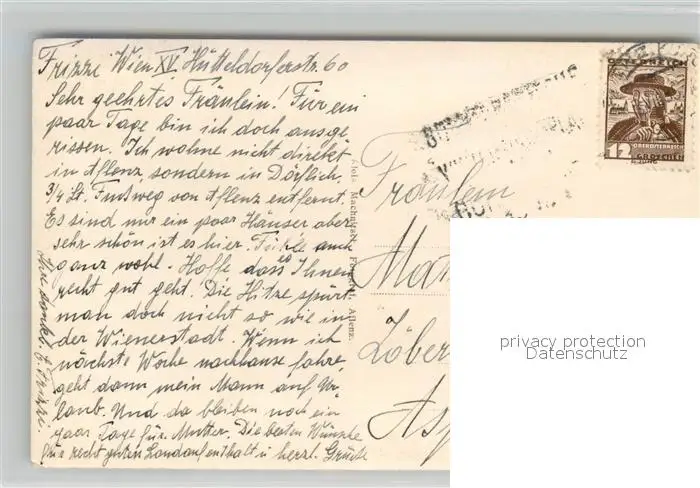 Frizzi Wien XV. Hütteldorferstr. 60
Sehr geehrtes Fräulein! Für ein
paar Tage bin ich doch ausge
rissen. Ich wohne nicht direkt
in Aflenz sondern in Dörflich,
3/4 St. Fußweg von Aflenz entfernt.
Es sind nur ein paar Häuser aber
sehr schön ist es hier. Fühle auch
ganz wohl. Hoffe dass es Ihnen
recht gut geht. Die Hitze spürt
man doch nicht so wie in
der Wienerstadt. Wenn ich
nächste Woche nachhause fahre,
geht dann mein Mann auf Ur
laub. Und da bleiben noch ein
paar Tage für Mutter. Die besten Wünsche
für recht guten Landaufenthalt u herzl. Grüße
Frizzi
Alois Machnitsch, Aflenz.
Fräulein
Mar
Löber
Asp
ÖSTERREICH
OBERÖSTERREICH
12 GROSCHEN
privacy protection
Datenschutz